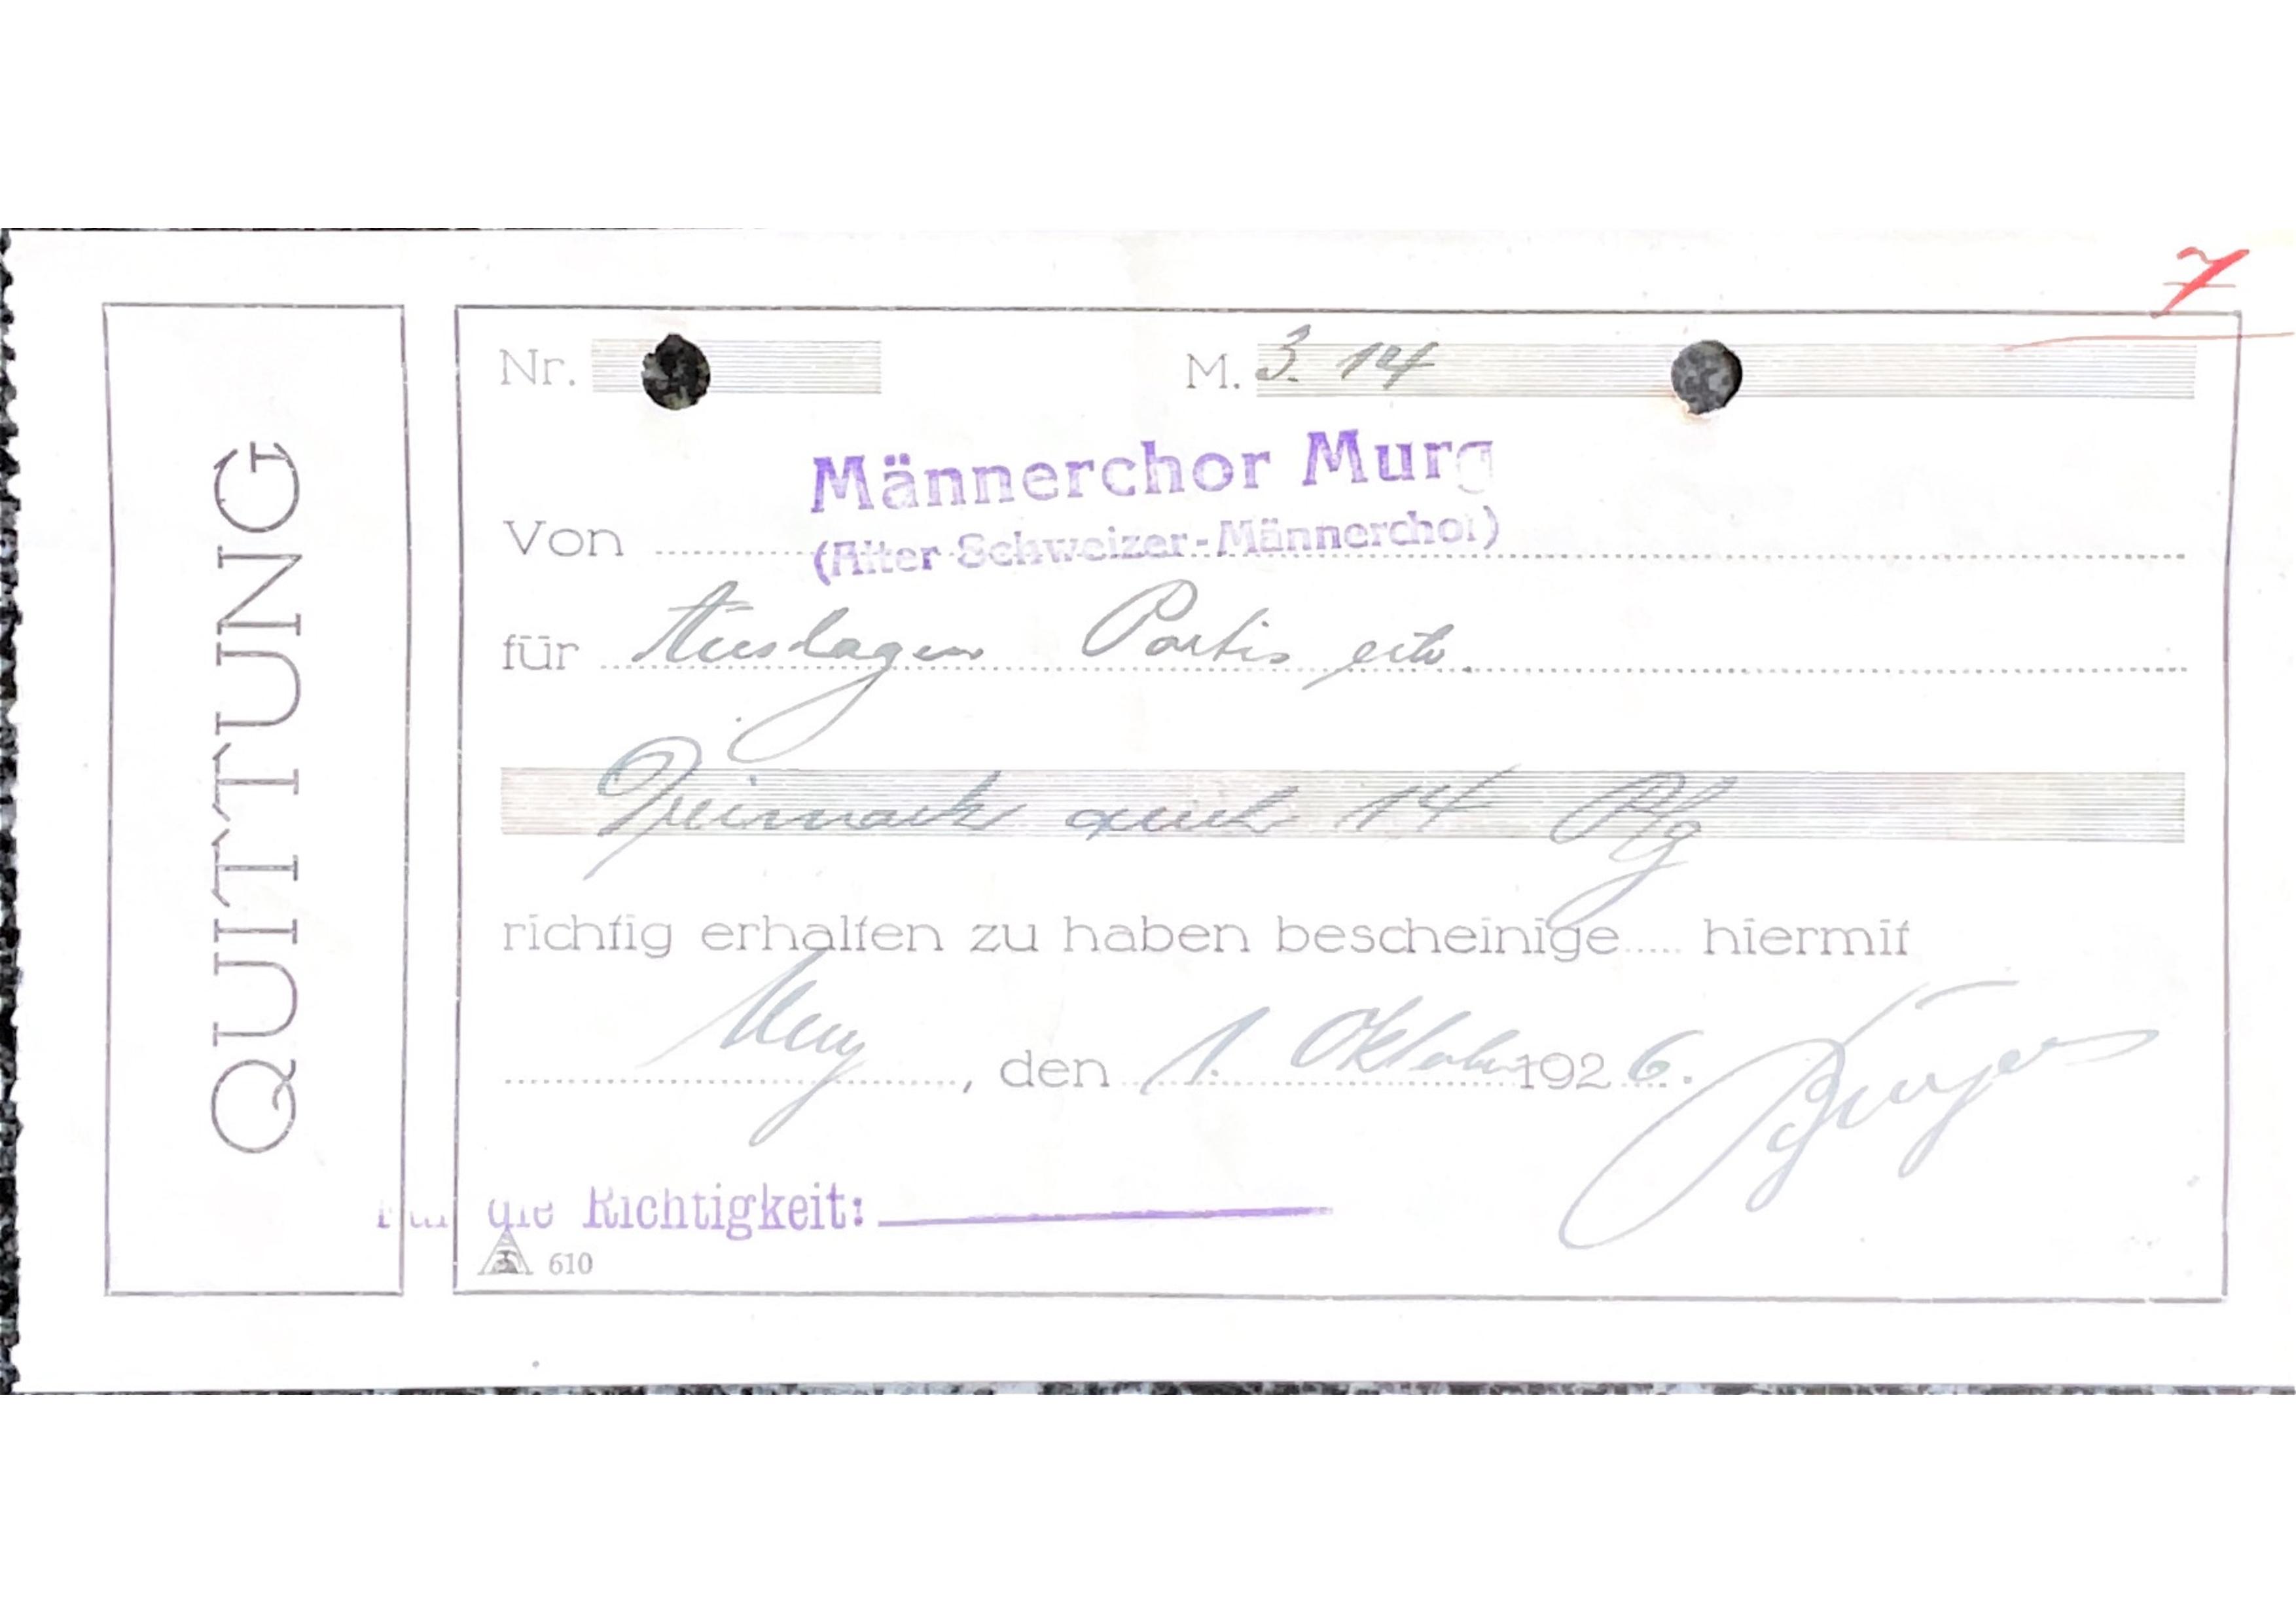 7
QUITTUNG
Nr. M. 3. 14
Männerchor Murg
Von (Alter Schweizer-Männerchor)
für Auslagen Portis etc.
Dreimark auch 14 Pfg
richtig erhalten zu haben bescheinige..... hiermit
Murg, den 1. Oktober 1926.
Für die Richtigkeit:
610